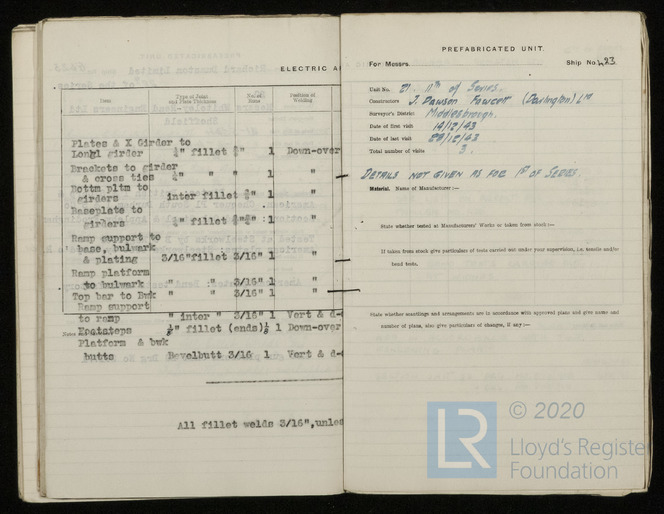 ELECTRIC A
Item
Type of Joint
and Plate Thickness
No. of
Runs
Position of
Welding
Plates & X Girder to
Longl girder ¼" fillet 1 Down-over
Brackets to girder
& cross ties ¼" " " 1 "
Bottm pltm to
girders inter fillet 1 "
Baseplate to
girders ¼" fillet 1 "
Ramp support to
base, bulwark
& plating 3/16"fillet 3/16" 1 "
Ramp platform
to bulwark " " 3/16" 1 "
Top bar to Bwk " " 3/16" 1 "
Ramp support
to ramp " inter " 3/16" 1 Vert & d-
Footsteps fillet (ends) 1 Down-over
Platform & bwk
butts Bevelbutt 3/16 1 Vert & d-
All fillet welds 3/16",unles
PREFABRICATED UNIT.
For Messrs. Ship No. 423
Unit No. 21. 11th of Series.
Constructors J. Dawson Fawcett (Darlington) Ltd
Surveyor's District Middlesbrough.
Date of first visit 14/12/43
Date of last visit 29/12/43
Total number of visits 3.
DETAILS NOT GIVEN AS FOR 1st OF SERIES.
Material. Name of Manufacturer :—
State whether tested at Manufacturers' Works or taken from stock :—
If taken from stock give particulars of tests carried out under your supervision, i.e. tensile and/or
bend tests.
State whether scantlings and arrangements are in accordance with approved plans and give name and
number of plans, also give particulars of changes, if any :—
LR
© 2020
Lloyd's Register
Foundation